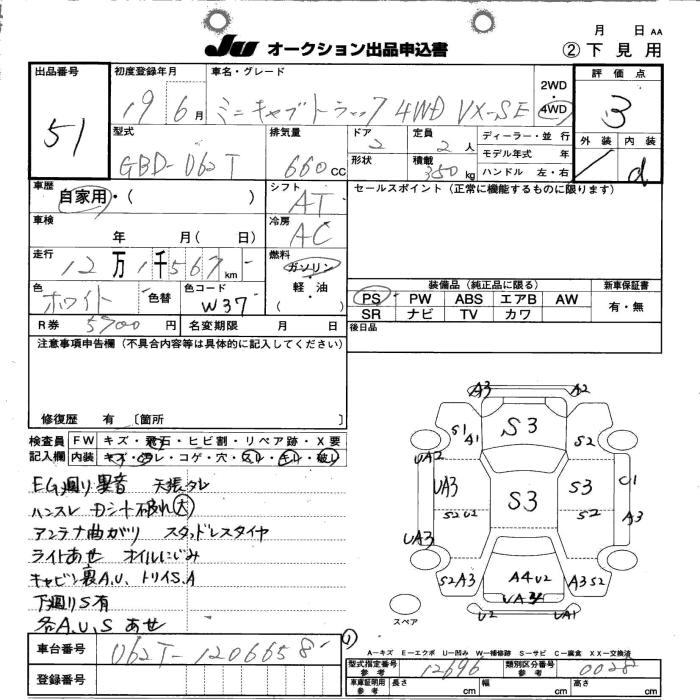 月 日 AA
JU オークション出品申込書 ②下見用
出品番号 51
初度登録年月 19 6月
車名・グレード ミニキャブトラック 4WD VX-SE
2WD
4WD
評価点 3
外装 内装 d
型式 GBD-U62T
排気量 660cc
ドア 2
定員 2人
形状
積載 350kg
ディーラー・並行
モデル年式 年
ハンドル 左・右
車歴 自家用・( )
シフト AT
セールスポイント(正常に機能するものに限ります)
車検 年 月( 日)
冷房 AC
走行 12万1千567km
燃料 ガソリン・軽・油 ( )
色 ホワイト 色替 色コード W37
装備品(純正品に限る) 新車保証書
PS PW ABS エアB AW 有・無
SR ナビ TV カワ
R券 5700円 名変期限 月 日
後日品
注意事項申告欄(不具合内容等は具体的に記入してください)
修復歴 有 〔箇所 〕
検査員記入欄
FW キズ・飛石・ヒビ割・リペア跡・X要
内装 キズ・ヨゴレ・コゲ・穴・スレ・キレ・破レ
EG廻り異音 天張タレ
ハンスレ 破れ大
アンテナ曲ガリ スタッドレスタイヤ
ライトあせ オイルにじみ
キャビン裏A.U、トリイS.A
下廻りS有
各A,U,S あせ
A3 A2
S3
S1 A1 S2
UA2
UA3 S3 S3 C1
S2 U2 S2 A3
UA3
S2 A3 A4 U2 A3 S2
UA3
U2 UA1
スペア
車台番号 U62T-1206658
登録番号
①
A-キズ E-エクボ U-凹み W-補修跡 S-サビ C-腐食 XX-交換済
型式指定番号 参考 12696 類別区分番号 参考 0028
車庫証明用 参考 長さ cm 幅 cm 高さ cm